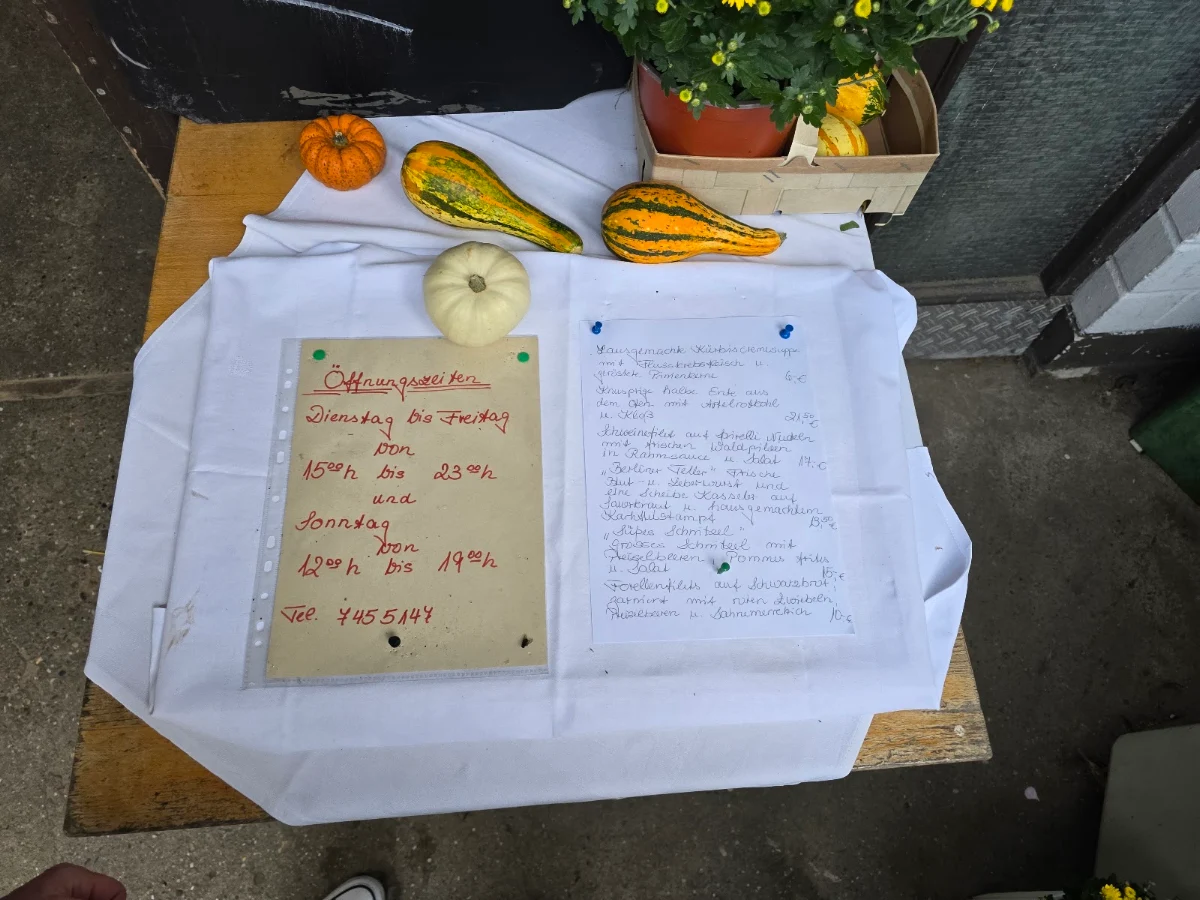 Öffnungszeiten
Dienstag bis Freitag
von
15ºº h bis 23ºº h
und
Sonntag
von
12ºº h bis 19ºº h
Tel. 7455147
Hausgemachte Kürbiscremesuppe
mit Flusskrebsfleisch u.
geröstete Pinienkerne 6,-€
Knusprige halbe Ente aus
dem Ofen mit Apfelrotkohl
u. Kloß 21,50 €
Schweinefilet auf Spirelli Nudeln
mit frischen Waldpilzen
in Rahmsauce u. Salat 17,-€
„Berliner Teller" Frische
Blut- u. Leberwurst und
eine Scheibe Kassler auf
Sauerkraut u. hausgemachtem
Kartoffelstampf 13,50 €
„Süßes Schnitzel"
Grosses Schnitzel mit
Preiselbeeren, Pommes frites
u. Salat 15,-€
Forellenfilets auf Schwarzbrot,
garniert mit roten Zwiebeln,
Preiselbeeren u. Sahnemeerrettich 10,-€